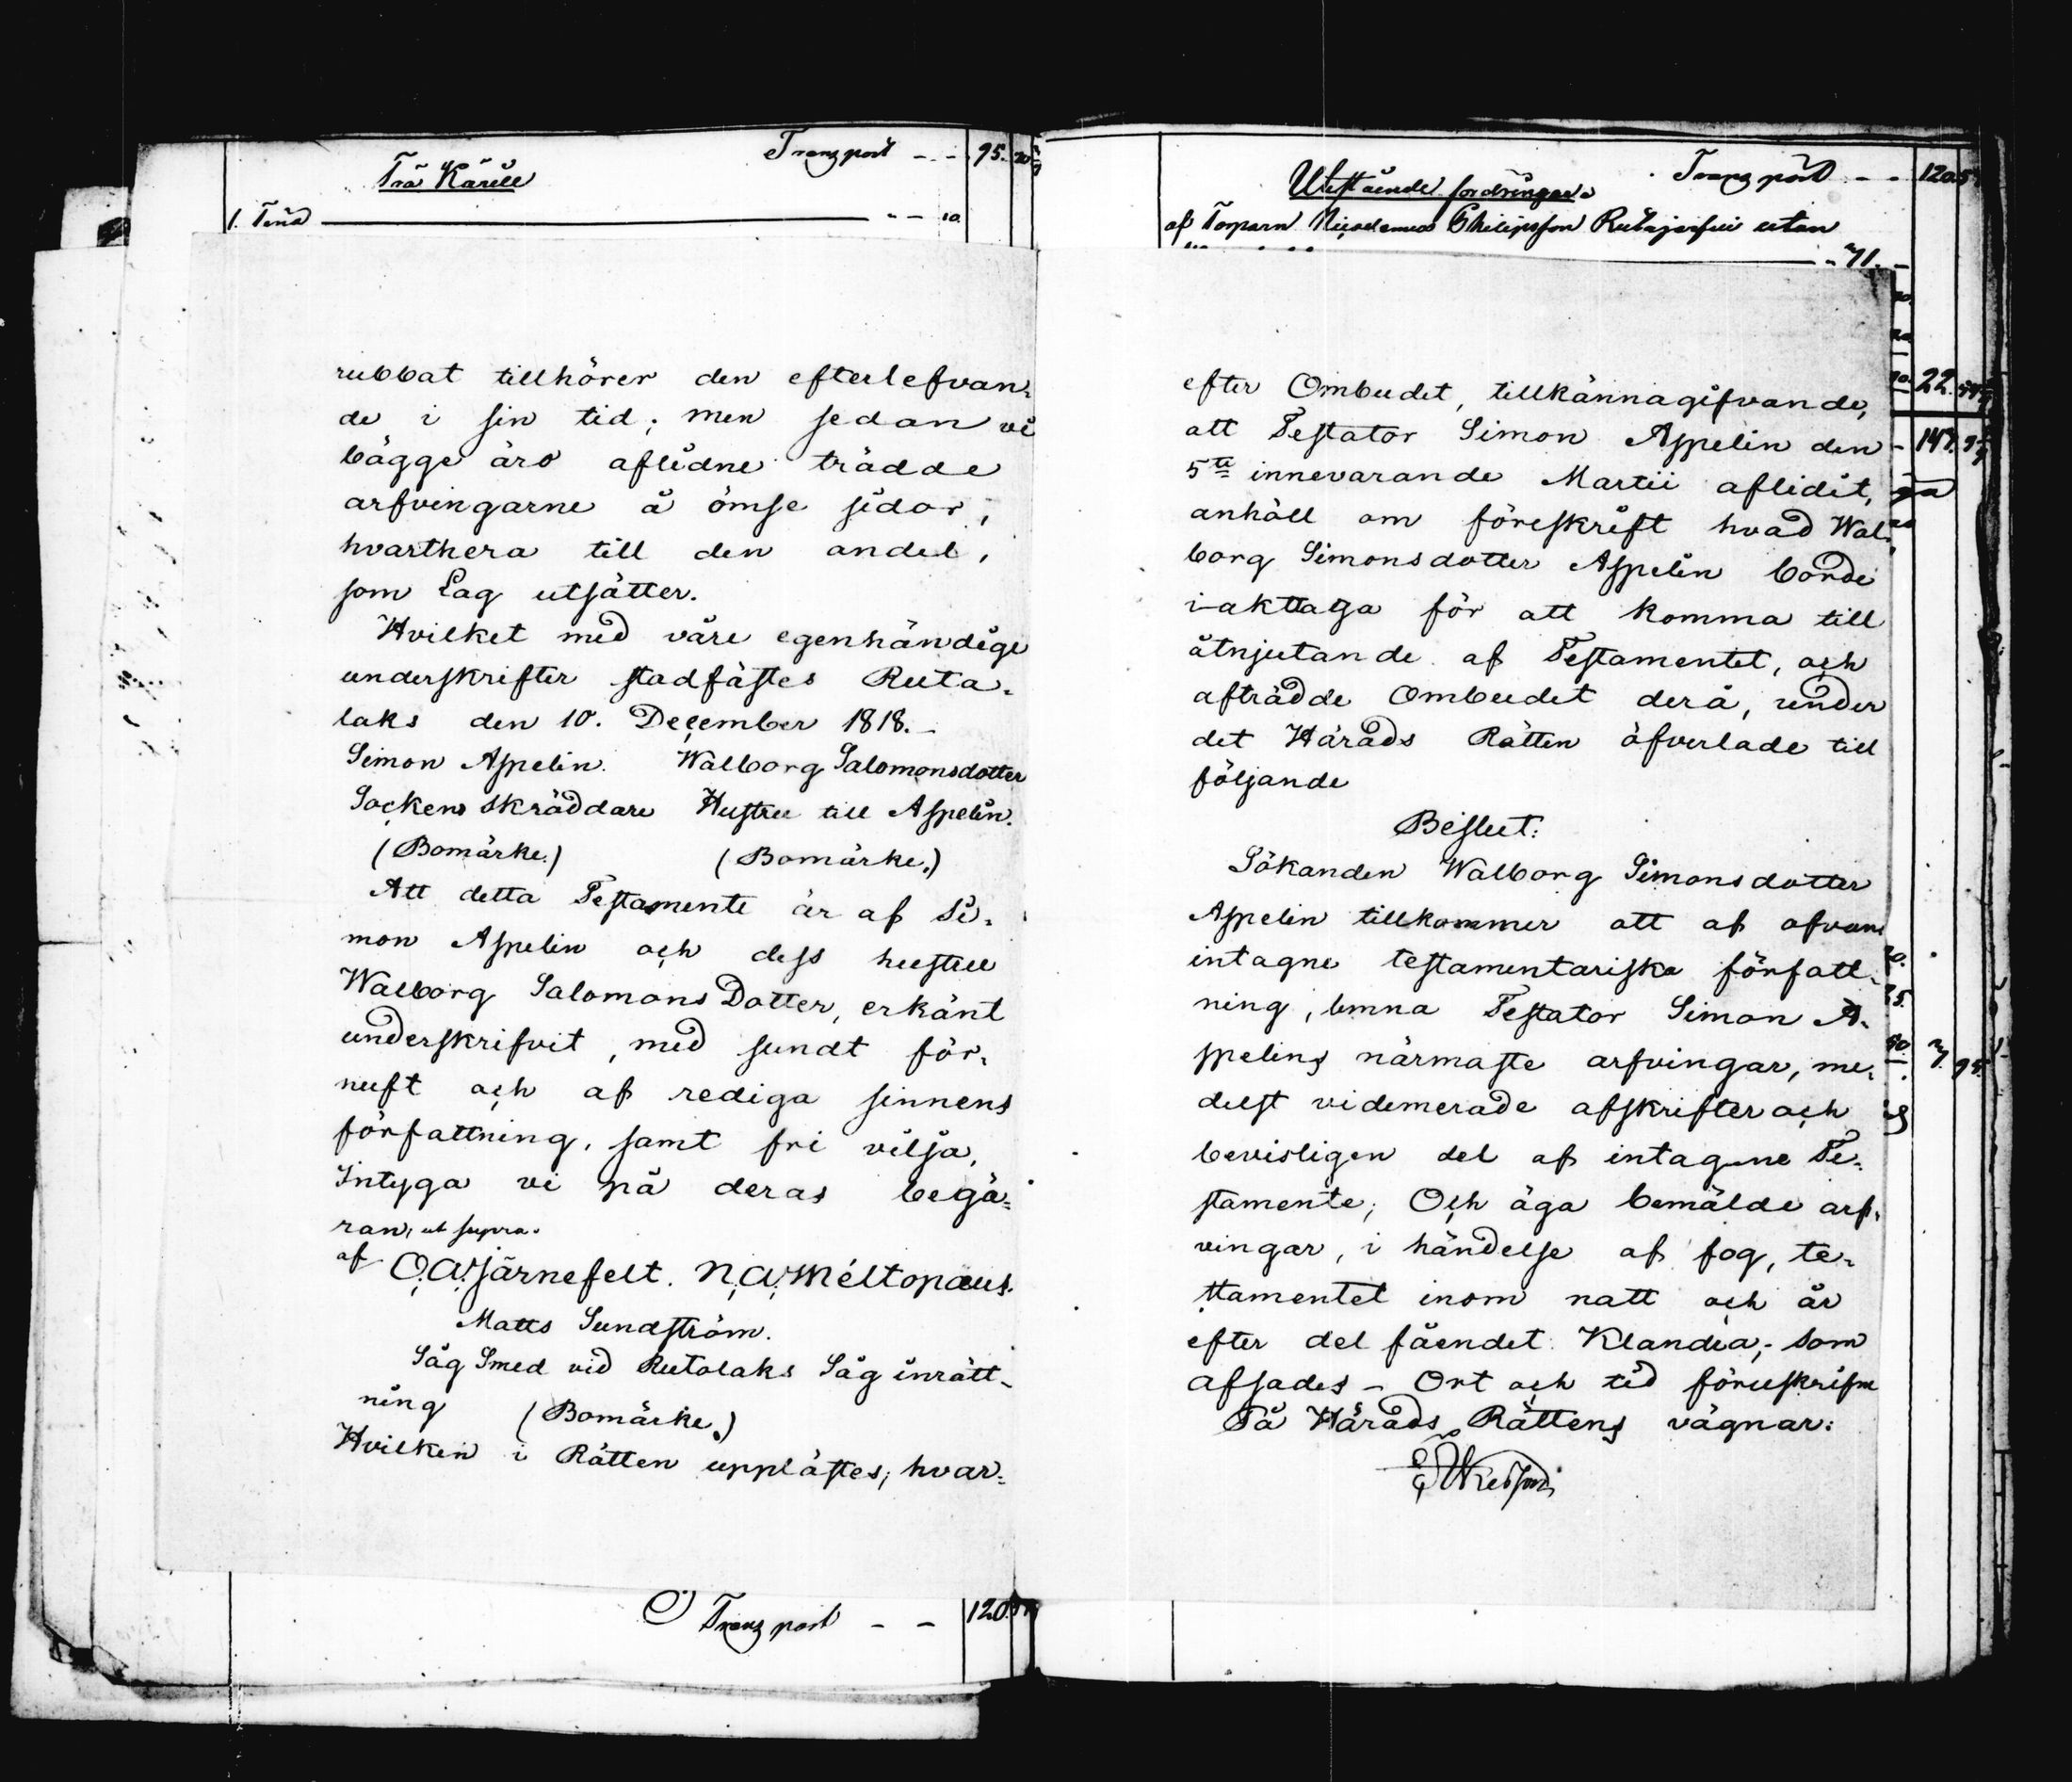 Transport - - 95. 20
Trä Kärill
1. Tina - - 10
rubbat tillhörer den efterlefvan-
de i sin tid; men sedan vi
bägge äro aflidne trädde
arfvingarne å ömse sidor,
hvarthera till den andel,
som Lag utsätter.
Hvilket med våre egenhändige
underskrifter stadfästes Ruta-
laks den 10. December 1818.-
Simon Aspelin. Walborg Salomonsdotter
Sockens skräddare Hustru till Aspelin.
(Bomärke.) (Bomärke.)
Att detta Testamente är af Si-
mon Aspelin och dess hustru
Walborg Salomons Dotter, erkänt
underskrifvit, med sundt för-
nuft och af rediga sinnens
författning, samt fri vilja,
Intyga vi på deras begä-
ran, ut supra.
af O. A. Järnefelt. N. A. Méltopæus.
Matts Sundström.
Såg Smed vid Rutalaks Såg inrätt-
ning (Bomärke.)
Hvilken i Rätten upplästes; hvar-
Transport - - 120.
Transport - - 120.5
Utestående fordringar
af Torparn Nicodemus Philipsson Rutajerfvi utan
71. -
efter Ombudet, tillkännagifvande,
att Testator Simon Aspelin den
5te innevarande Martii aflidit,
anhöll om föreskrift hvad Wal-
borg Simonsdotter Aspelin borde
i-akttaga för att komma till
åtnjutande af Testamentet, och
afträdde Ombudet derå, under
det Härads Rätten öfverlade till
följande
Beslut:
Sökanden Walborg Simonsdotter
Aspelin tillkommer att af ofvan
intagne testamentariska författ-
ning, lemna Testator Simon A-
spelins närmaste arfvingar, me-
delst videmerade afskrifter och
bevisligen del af intagne Te-
stamente; Och äga bemälde arf-
vingar, i händelse af fog, te-
stamentet inom natt och år
efter del fåendet Klandra; som
afsades - Ort och tid föreskrifne
På Härads Rättens vägnar:
22.
147.
95.